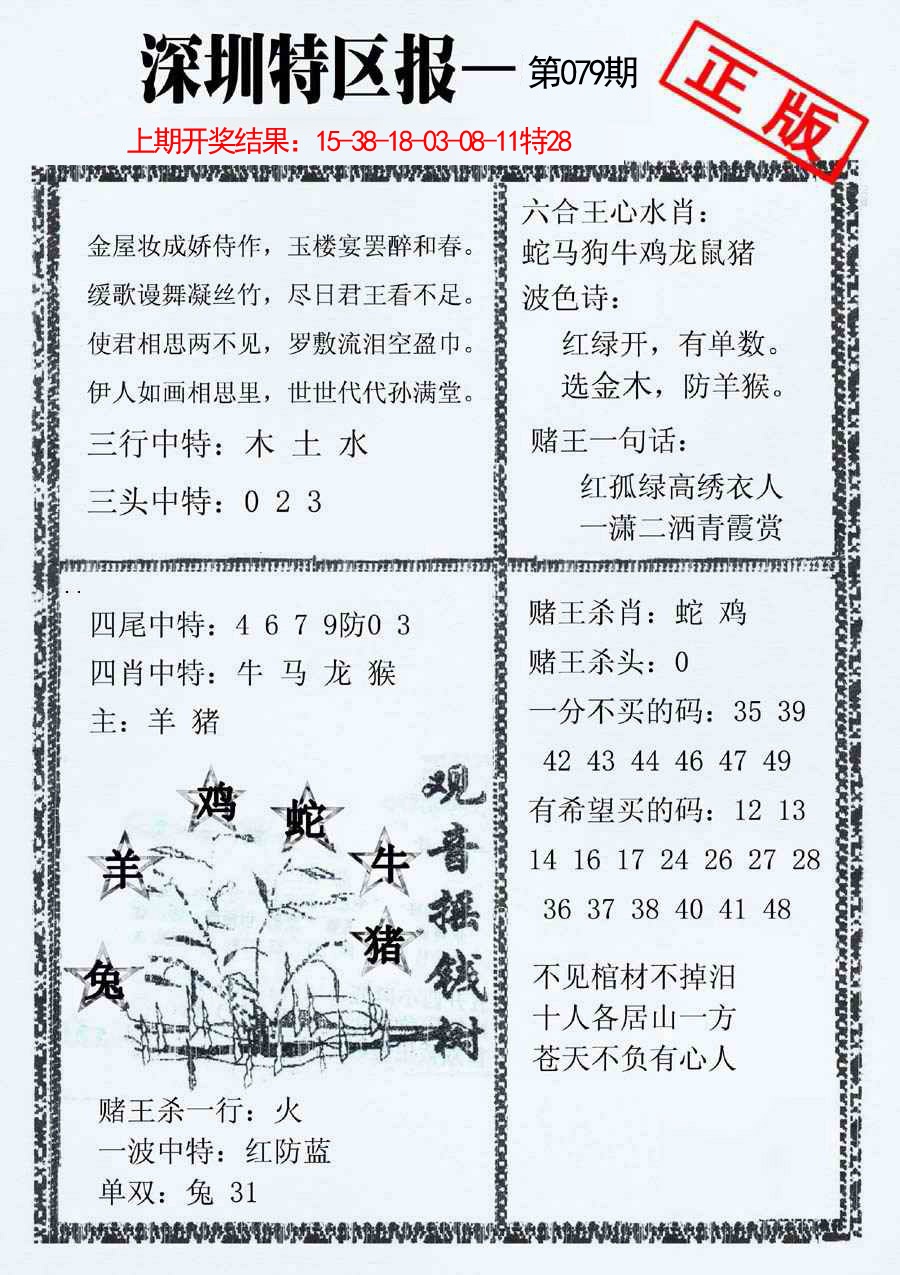 深圳特区报一 第079期
正版
上期开奖结果：15-38-18-03-08-11特28
金屋妆成娇侍作，玉楼宴罢醉和春。
缓歌谩舞凝丝竹，尽日君王看不足。
使君相思两不见，罗敷流泪空盈巾。
伊人如画相思里，世世代代孙满堂。
三行中特：木 土 水
三头中特：0 2 3
六合王心水肖：
蛇马狗牛鸡龙鼠猪
波色诗：
红绿开，有单数。
选金木，防羊猴。
赌王一句话：
红孤绿高绣衣人
一潇二洒青霞赏
四尾中特：4 6 7 9防0 3
四肖中特：牛 马 龙 猴
主：羊 猪
鸡
蛇
羊
牛
猪
兔
观音摇钱树
赌王杀一行：火
一波中特：红防蓝
单双：兔 31
赌王杀肖：蛇 鸡
赌王杀头：0
一分不买的码：35 39
42 43 44 46 47 49
有希望买的码：12 13
14 16 17 24 26 27 28
36 37 38 40 41 48
不见棺材不掉泪
十人各居山一方
苍天不负有心人